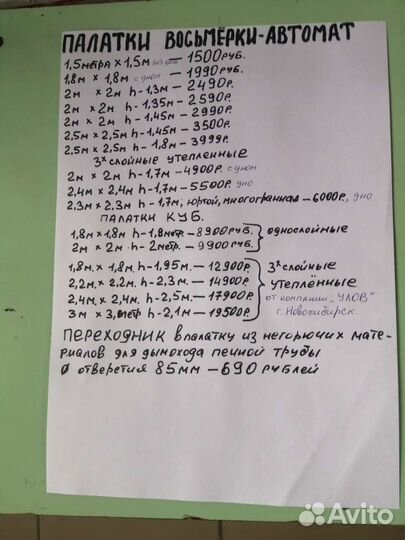 ПАЛАТКИ ВОСЬМЁРКИ-АВТОМАТ
1,5метра × 1,5м без дна — 1500РУБ.
1,8м × 1,8м с дном — 1990РУБ.
2м × 2м h-1,3м — 2490Р.
2м × 2м h-1,35м — 2590Р.
2м × 2м h-1,45м — 2990Р.
2,5м × 2,5м h-1,45м — 3500Р.
2,5м × 2,5м h-1,8м — 3999Р.
3х слойные утепленные
2м × 2м h-1,7м — 4900Р. с дном
2,4м × 2,4м h-1,7м — 5500Р. дно
2,3м × 2,3м h-1,7м, юртой, многогранная — 6000Р., дно
ПАЛАТКИ КУБ.
1,8м × 1,8м h-1,8метр. — 8900РУБ. однослойные
2м × 2м h-2метр. — 9900РУБ.
1,8м. × 1,8м. h-1,95м. — 12900Р. 3х слойные
2,2м. × 2,2м. h-2,3м. — 14900Р. утеплённые
2,4м. × 2,4м. h-2,5м. — 17900Р. от компании "УЛОВ"
3м × 3метр h-2,1м — 19500Р. г. Новосибирск.
ПЕРЕХОДНИК в палатку из негорючих мате-
риалов для дымохода печной трубы
ø отверстия 85мм — 690 РУБЛЕЙ
Avito